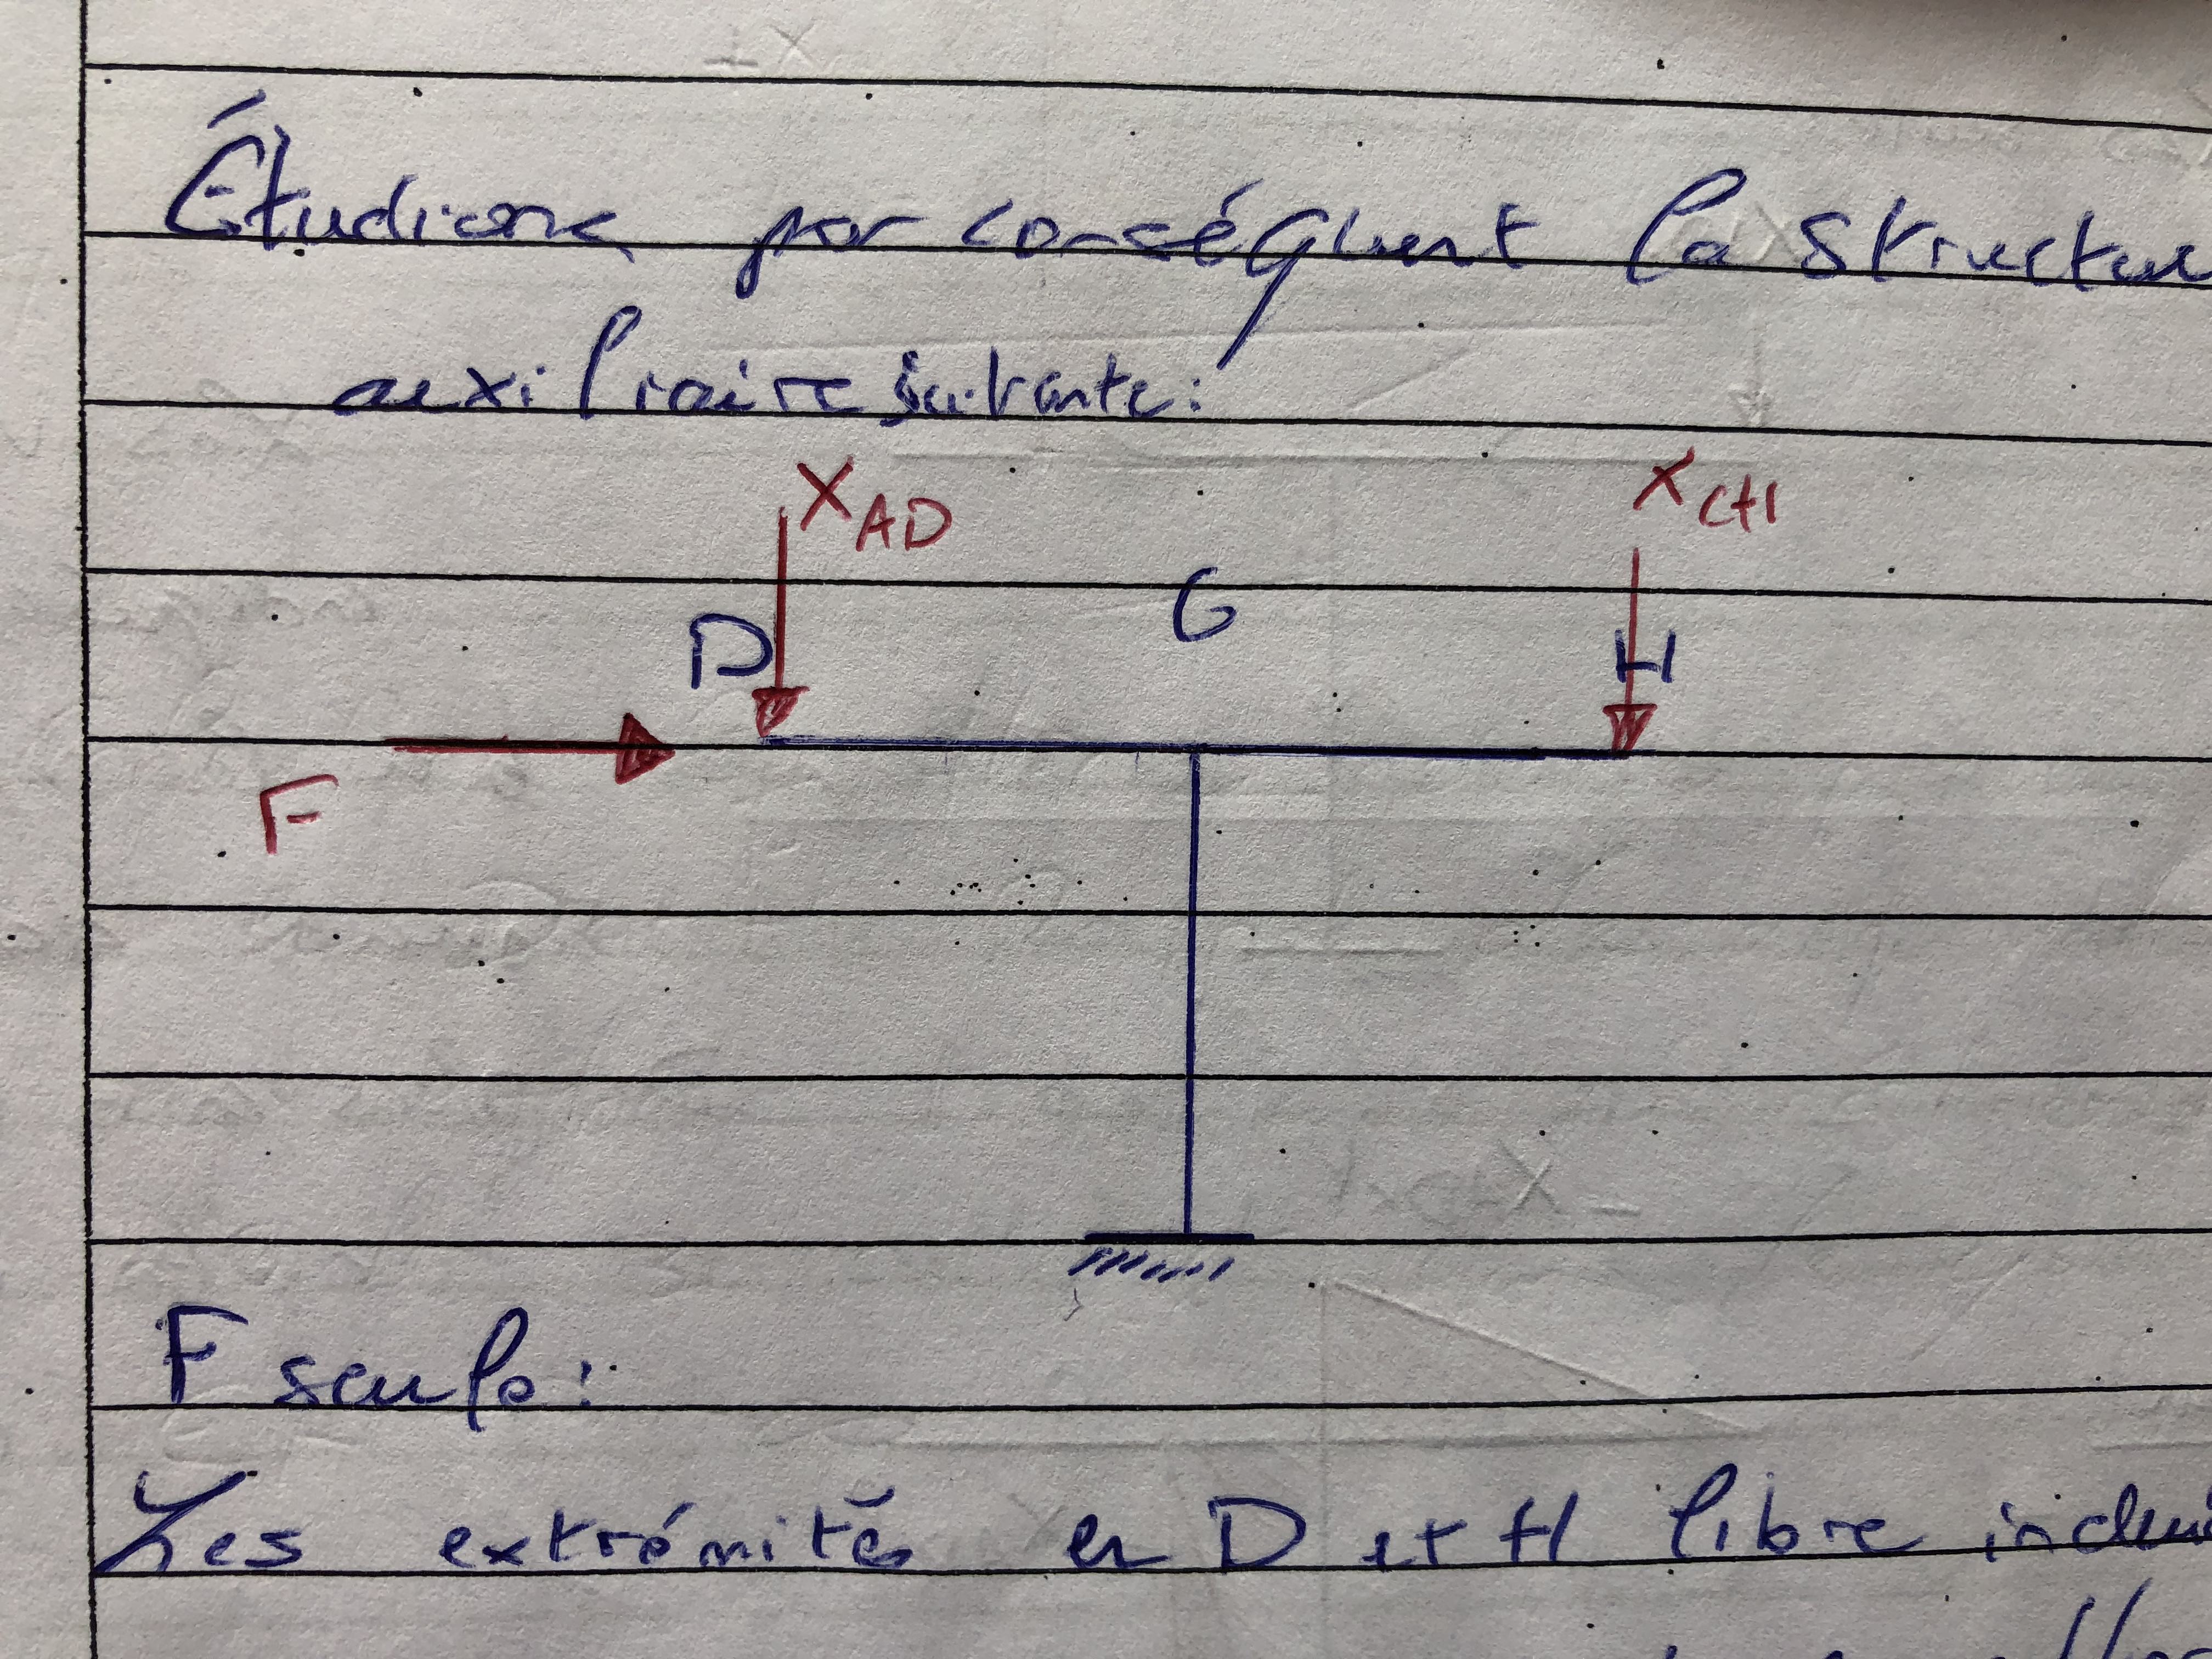 Étudions par conséquent la structure
auxiliaire suivante:
X AD
X CH
D
G
H
F
F seule:
Les extrémités en D et H libre